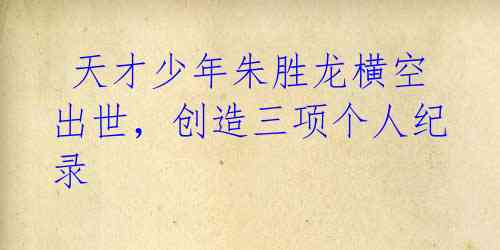 天才少年朱胜龙横空
出世，创造三项个人纪
录